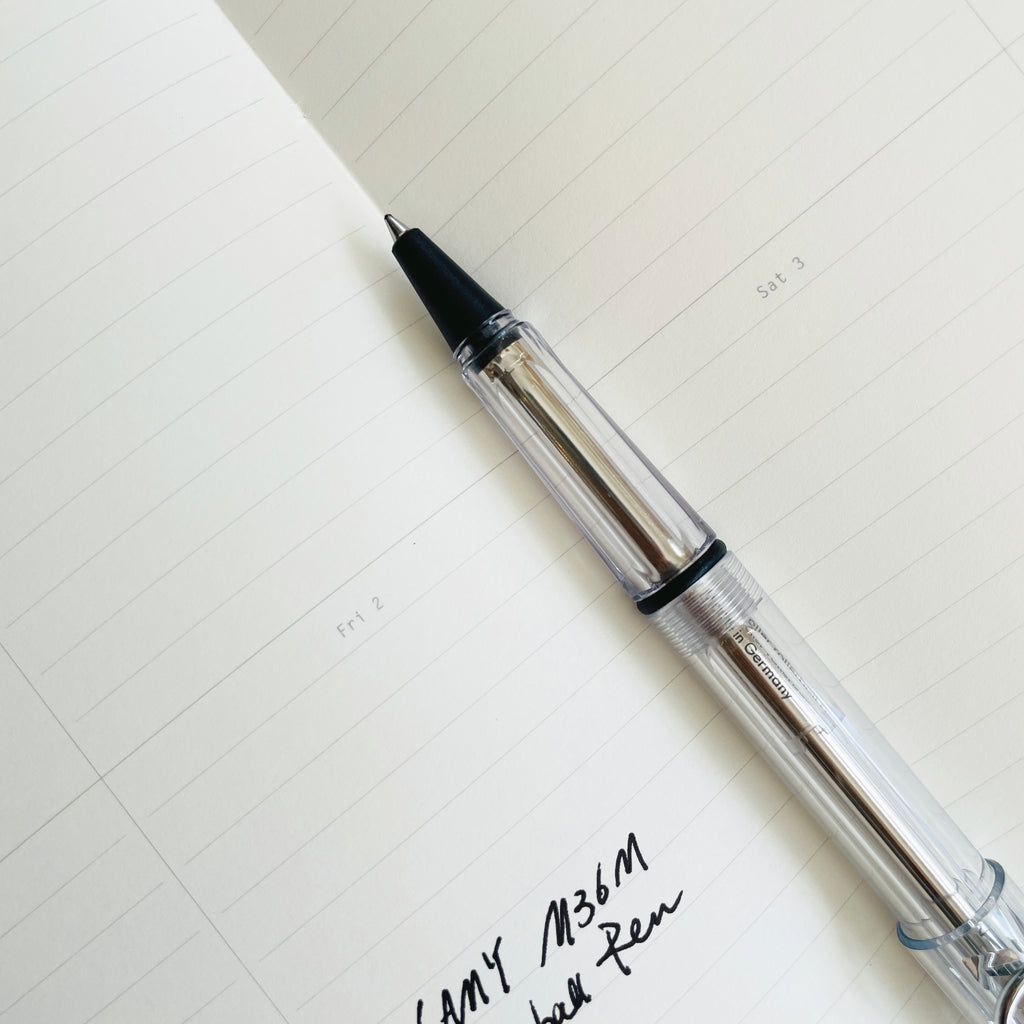 Sat 3
Fri 2
in Germany
LAMY M36M
ball Pen